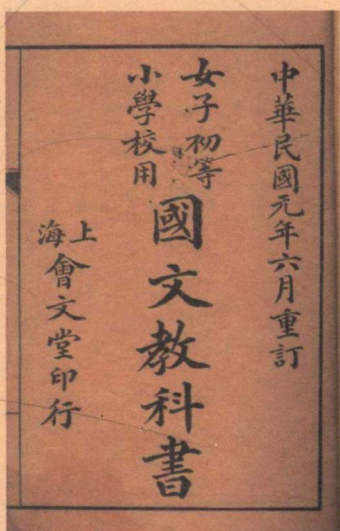 中華民國元年六月重訂
女子初等
小學校用
國文教科書
上海
會文堂印行